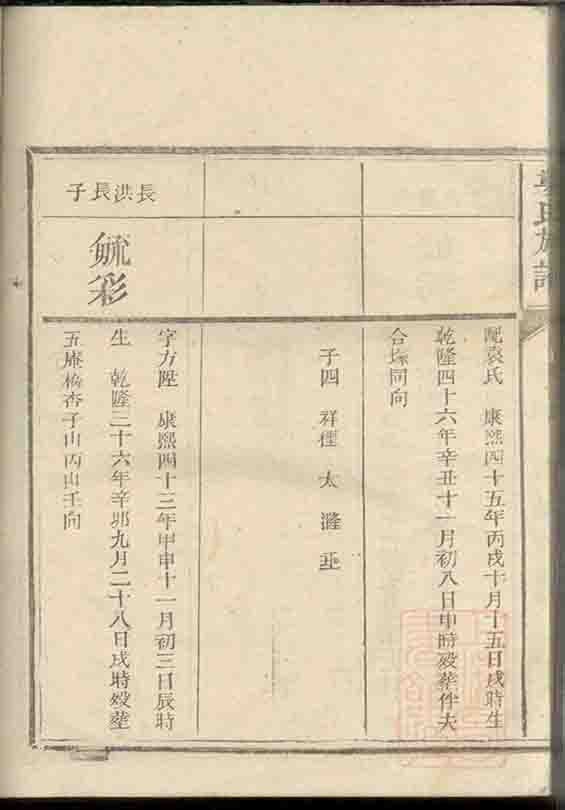 氏族譜
配袁氏 康熙四十五年丙戌十月十五日戌時生
乾隆四十六年辛丑十一月初八日申時歿塟伴夫
合塚同向
子四 祥 太
長洪長子
毓彩
字方陞 康熙四十三年甲申十一月初三日辰時
生 乾隆三十六年辛卯九月二十八日戌時歿塟
五庵橋杏子山丙山壬向